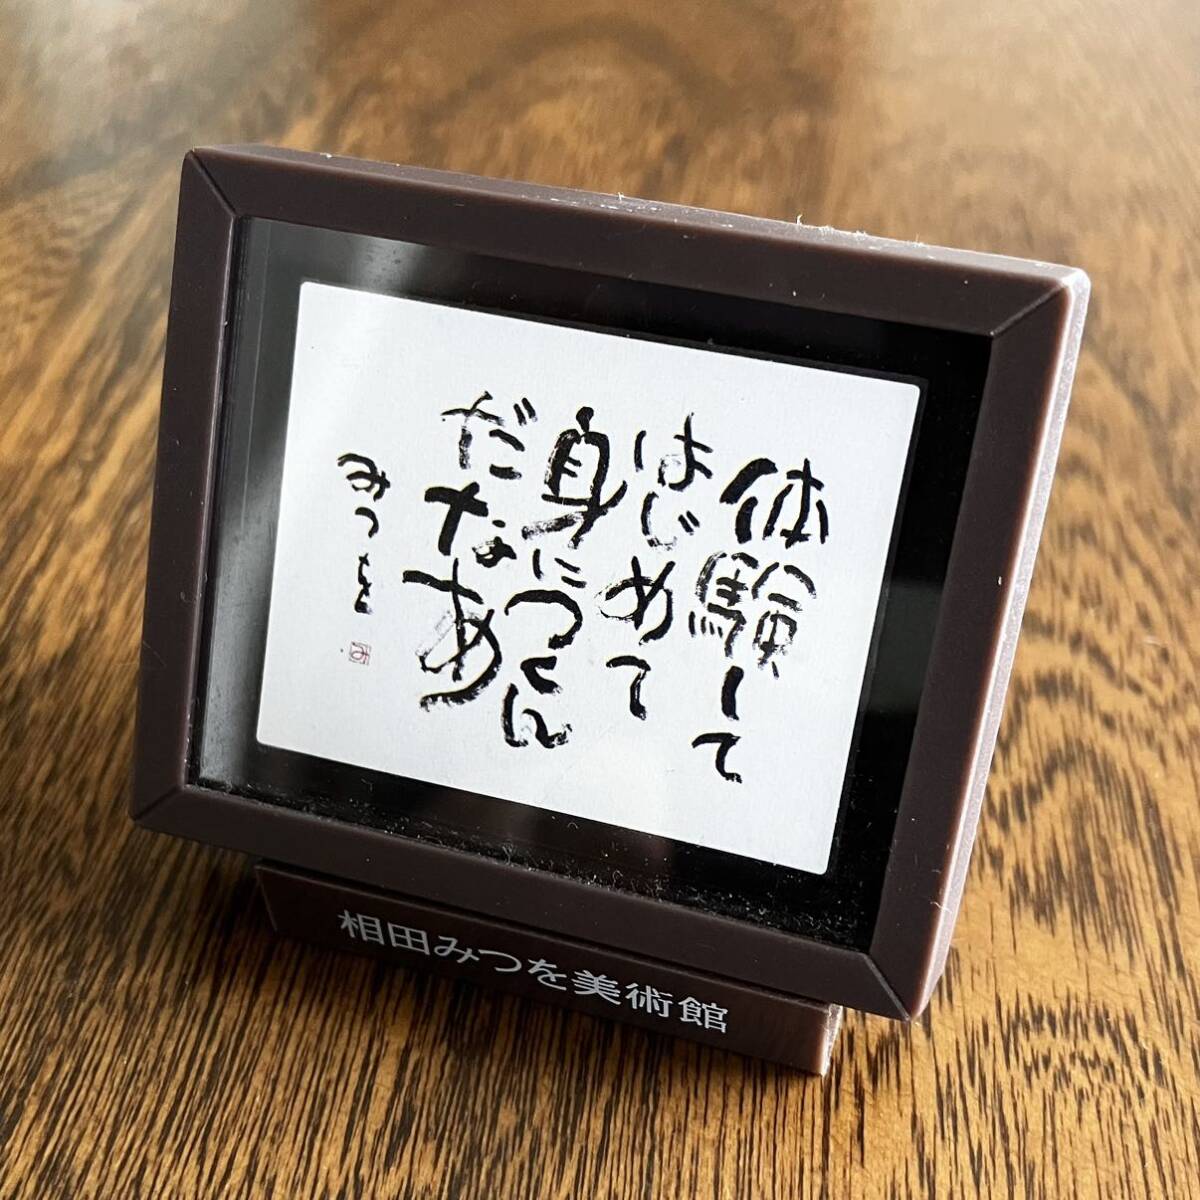 体験して
はじめて
身につくん
だなあ
みつを
み
相田みつを美術館